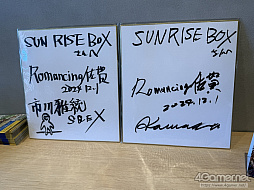 SUNRISE BOX
さんへ
Romancing佐賀
2024.12.1
市川雅統
S.E.X
SUNRISE BOX
さんへ
Romancing佐賀
2024.12.1
4Gamer.net